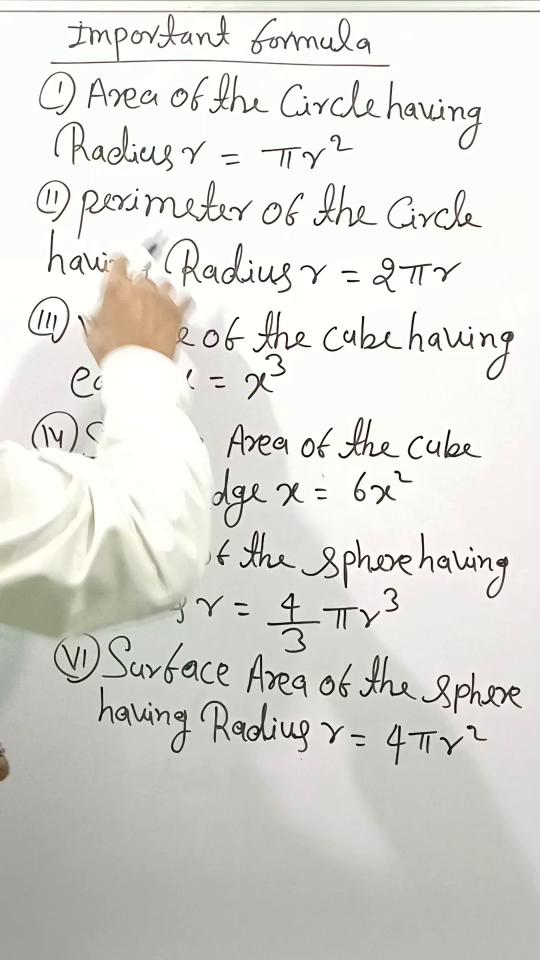 Important formula
(I) Area of the Circle having
Radius r = πr²
(II) perimeter of the Circle
Radius r = 2πr
(III) of the cube having
= x³
(IV) Area of the cube
x = 6x²
the sphere having
r = 4/3 πr³
(VI) Surface Area of the sphere
having Radius r = 4πr²